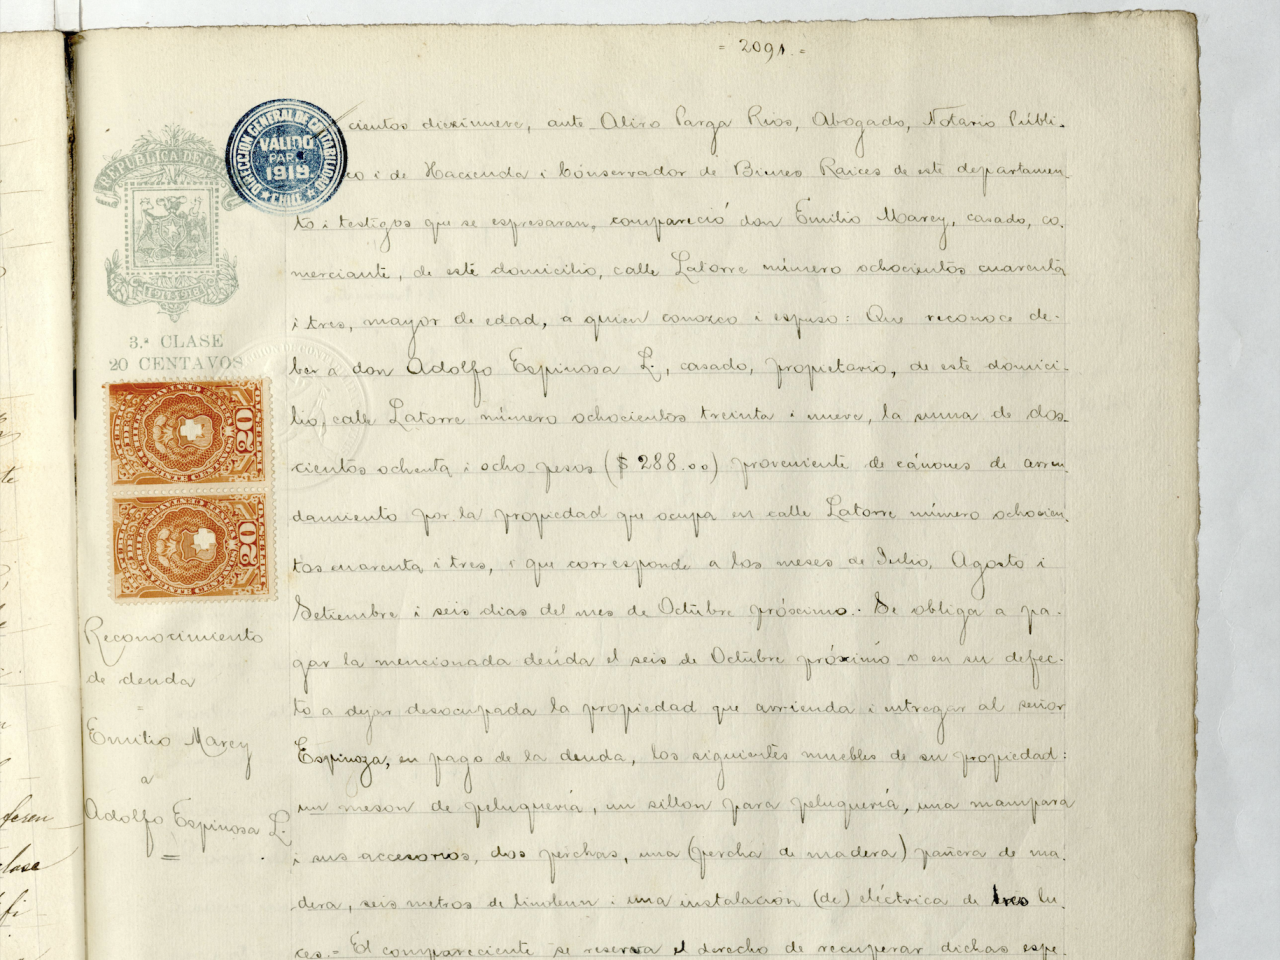 = 2091. =
REPUBLICA DE CHILE
3.ª CLASE
20 CENTAVOS
DIRECCION GENERAL DE CONTABILIDAD
VALIDO
PARA
1919.
CHILE
20
20
Reconocimiento
de deuda
=
Emilio Marey
a
Adolfo Espinosa L.
=
cientos diezinueve, ante Aliro Parga Rios, Abogado, Notario Públi-
co i de Hacienda i Conservador de Bienes Raices de este departamen-
to i testigos que se espresaran, compareció don Emilio Marey, casado, co-
merciante, de este domicilio, calle Latorre número ochocientos cuarenta
i tres, mayor de edad, a quien conozco i espuso: Que reconoce de-
ber a don Adolfo Espinosa L., casado, propietario, de este domici-
lio, calle Latorre número ochocientos treinta i nueve, la suma de dos-
cientos ochenta i ocho pesos ($ 288.00) proveniente de cánones de arren-
damiento por la propiedad que ocupa en calle Latorre número ochocien-
tos cuarenta i tres, i que corresponde a los meses de Julio, Agosto i
Setiembre i seis dias del mes de Octubre próximo.- Se obliga a pa-
gar la mencionada deuda el seis de Octubre próximo o en su defec-
to a dejar desocupada la propiedad que arrienda i entregar al señor
Espinoza, en pago de la deuda, los siguientes muebles de su propiedad:
un meson de peluqueria, un sillon para peluqueria, una mampara
i sus accesorios, dos perchas, una (percha de madera) pañera de ma-
dera, seis metros de linoleun i una instalacion (de) eléctrica de tres lu-
ces.= El compareciente se reserva el derecho de recuperar dichas espe-
feren
clase
fi
te